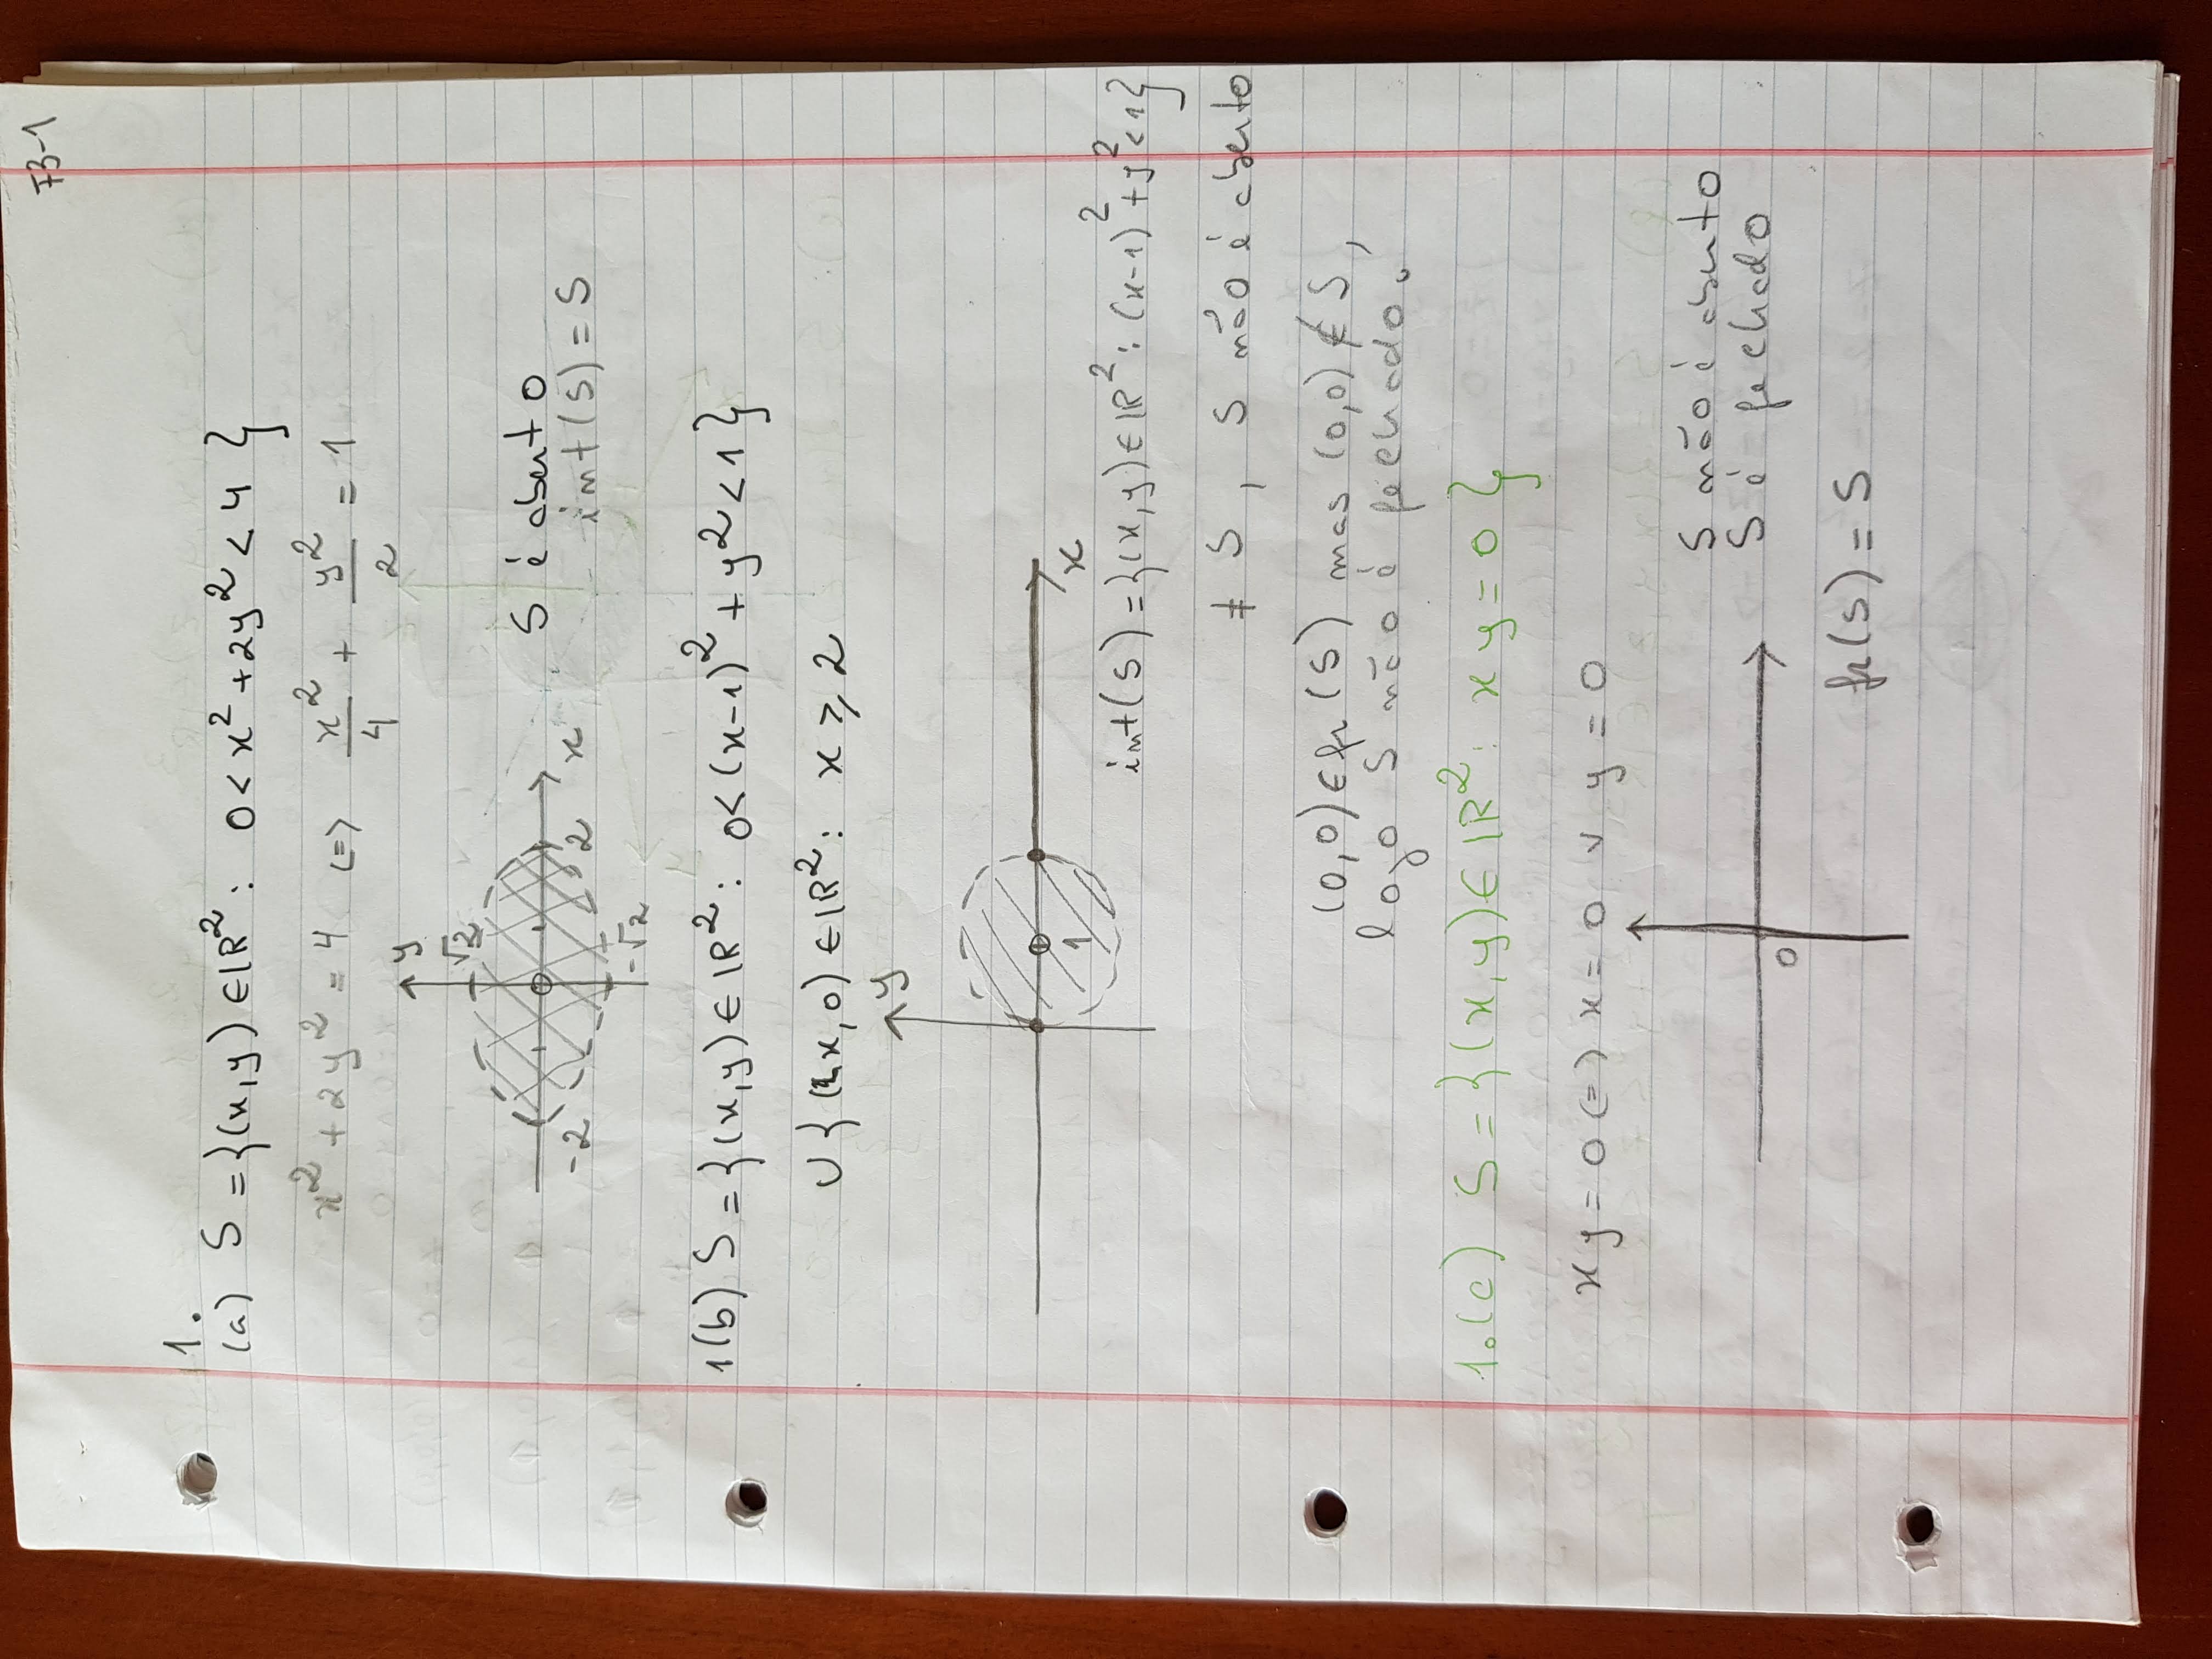 F3-1
1.
(a) S = {(x,y) ∈ ℝ² : 0 < x² + 2y² < 4 }
x² + 2y² = 4 (=) x²/4 + y²/2 = 1
y
√2
-2 2 x
-√2
S é aberto
int(S) = S
1(b) S = {(x,y) ∈ ℝ² : 0 < (x-1)² + y² < 1 }
∪ { (x,0) ∈ ℝ² : x ⩾ 2
y
1
x
int(S) = {(x,y) ∈ ℝ² : (x-1)² + y² < 1}
≠ S , S não é aberto
(0,0) ∈ fr(S) mas (0,0) ∉ S ,
logo S não é fechado.
1.(c) S = {(x,y) ∈ ℝ² : x y = 0 }
x y = 0 (=) x = 0 ∨ y = 0
0
S não é aberto
S é fechado
fr(S) = S